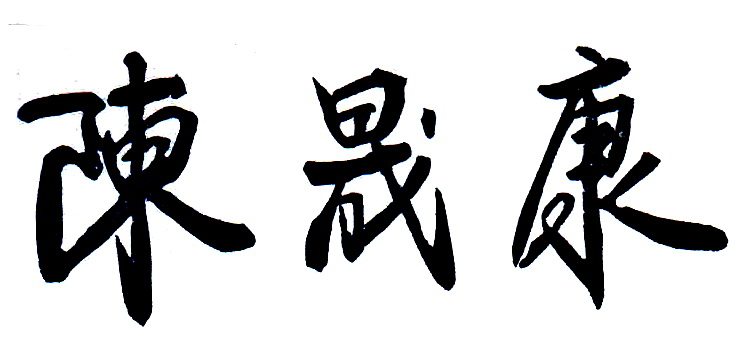 陳晟康